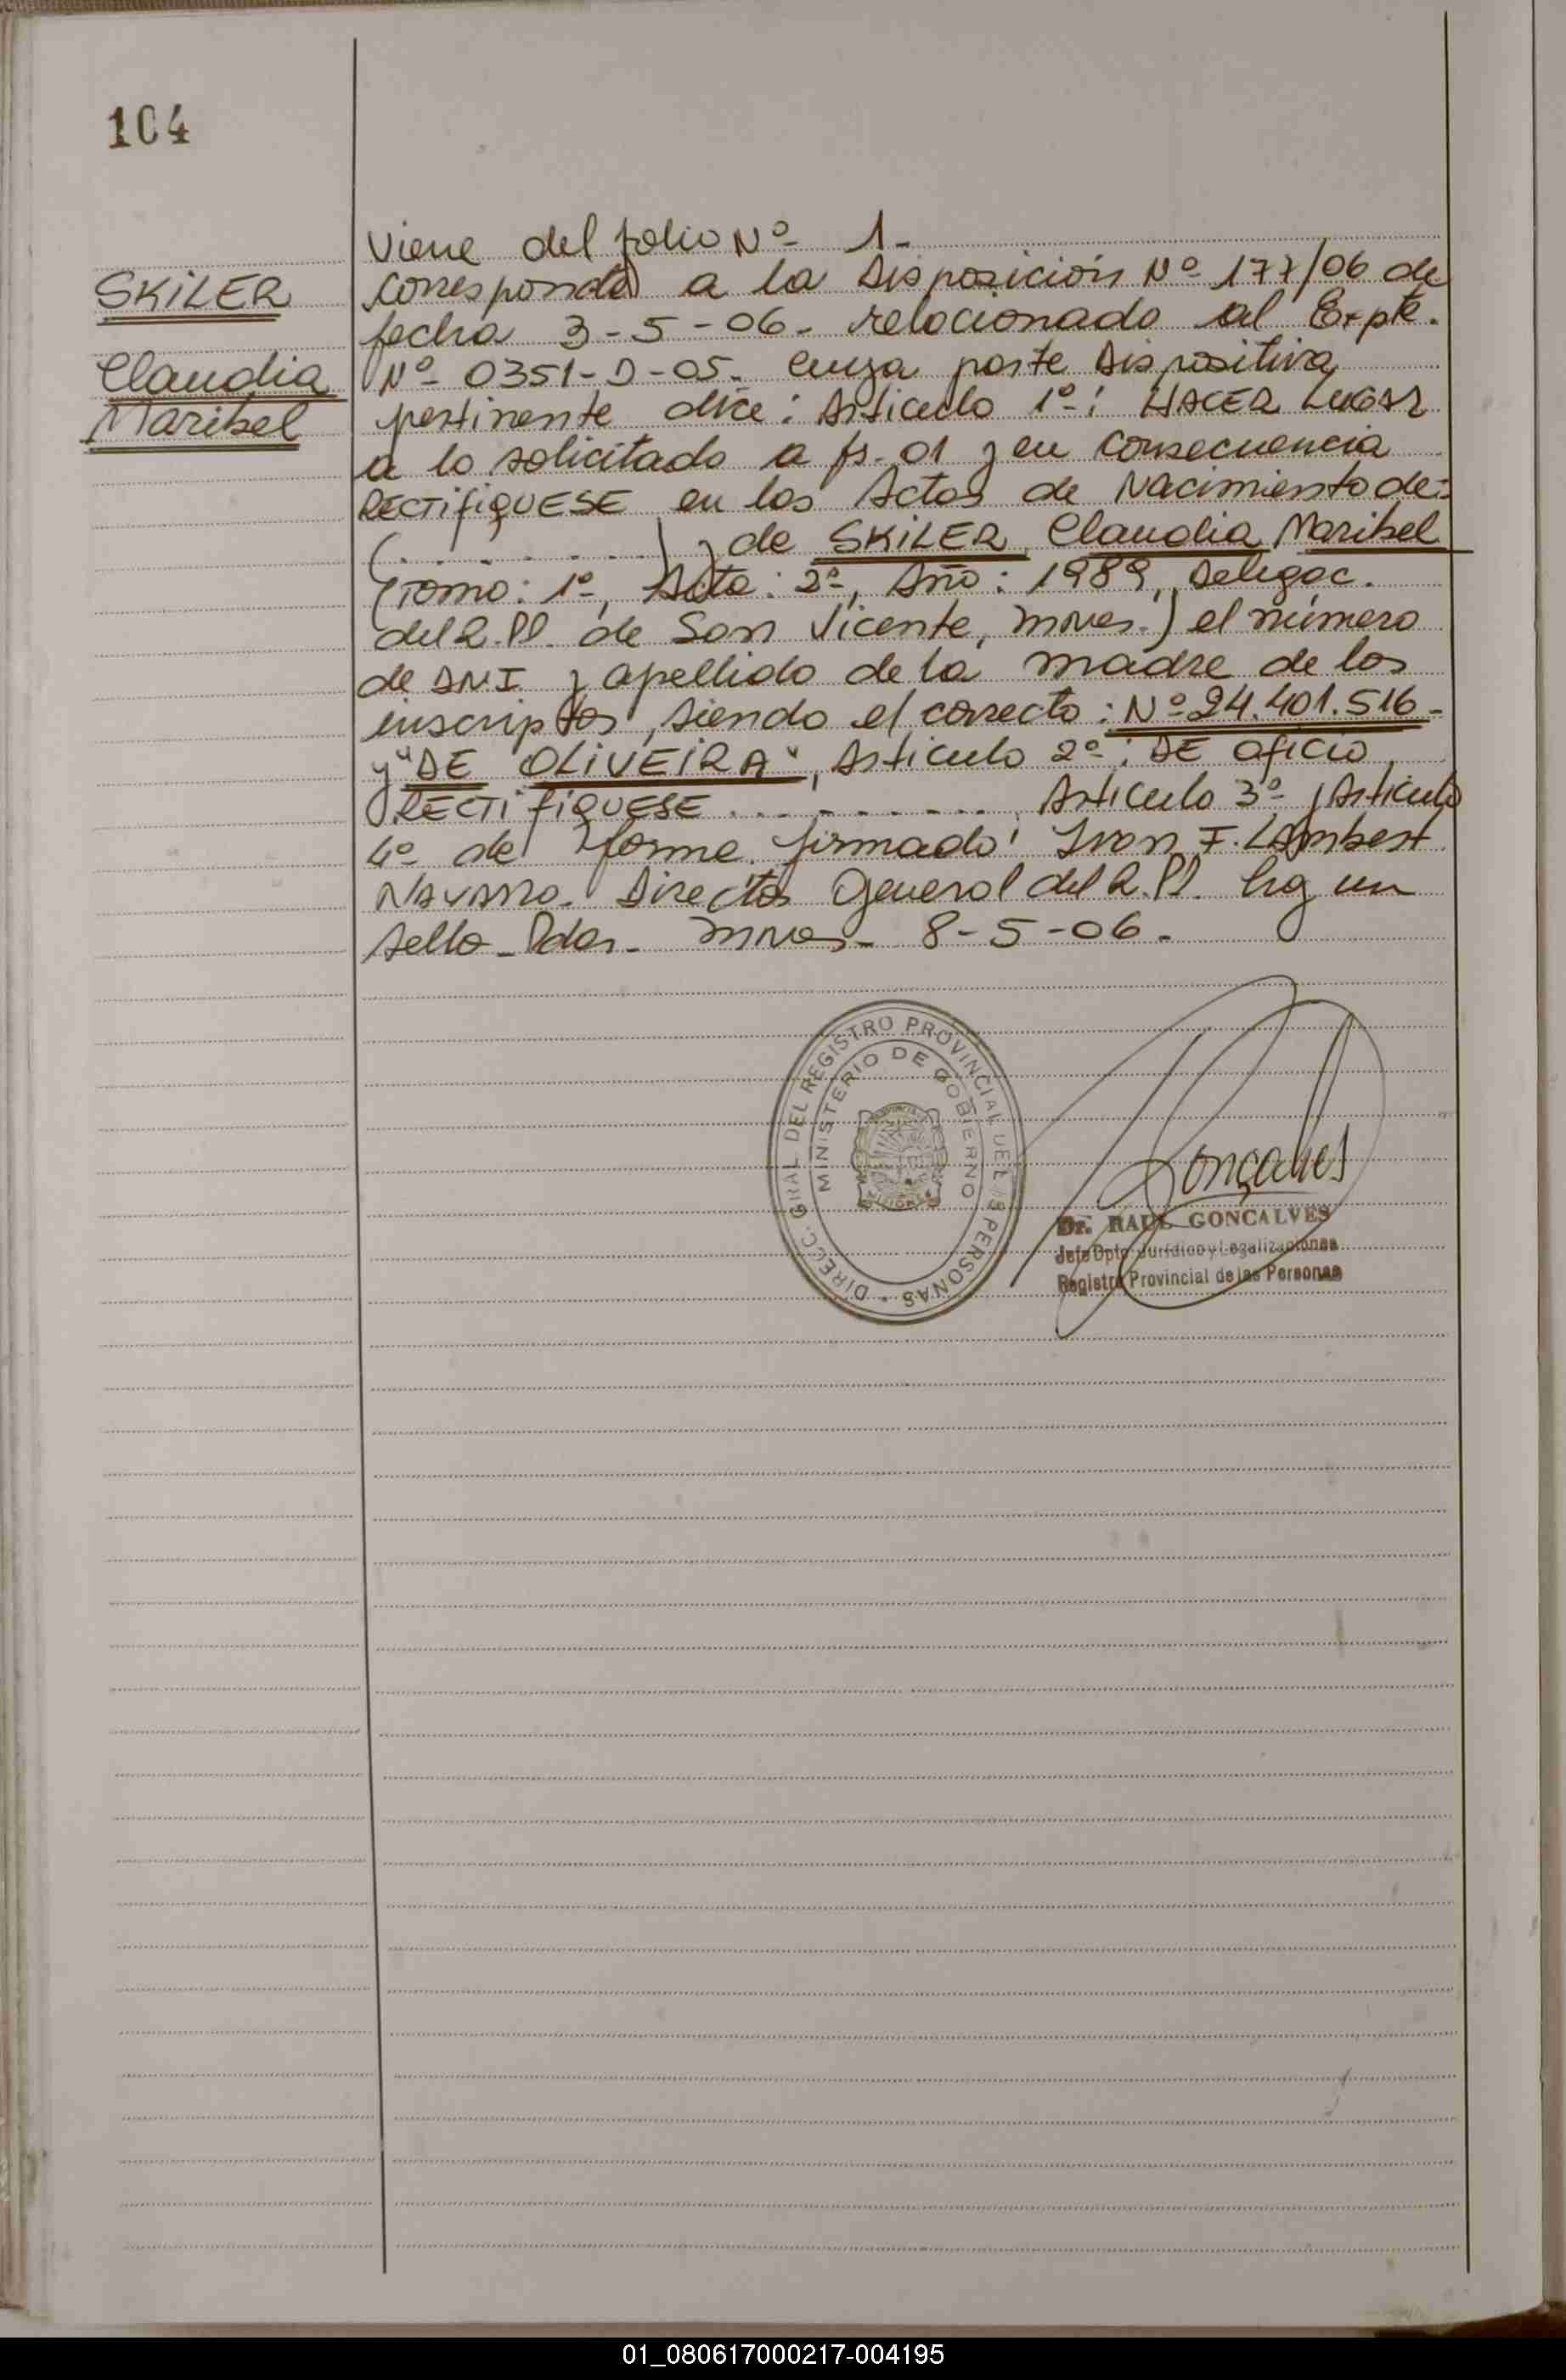 104
SKiLER
Claudia
Maribel
Viene del folio Nº 1-
Corresponde a la Disposición Nº 177/06 de
fecha 3-5-06- relacionado al Expte.
Nº 0351-D-05- cuya parte Dispositiva
pertinente dice: Articulo 1º: HACER LUGAR
a lo solicitado a fs. 01 y en consecuencia
RECTIFIQUESE en las Actas de Nacimiento de:
(. . . . . . . . .) y de SKiLER Claudia Maribel
(Tomo: 1º, Acta: 2º, Año: 1989, Delegac.
del R.PP. de San Vicente, Mnes.) el número
de DNI y apellido de la madre de los
inscriptos, siendo el correcto: Nº 24.401.516-
y "DE OLIVEIRA", Articulo 2º: DE oficio
RECTIFIQUESE . . . . . . . . . . . Articulo 3º y Articulo
4º de forma. firmado: Ivan F. Lambert
Navarro. Director General del R.PP. hay un
sello - Pdas- Mnes- 8-5-06.
DIRECC. GRAL DEL REGISTRO PROVINCIAL DE LAS PERSONAS
MINISTERIO DE GOBIERNO
Gonçalves
Dr. RAUL GONCALVES
Jefe Dpto. Jurídico y Legalizaciones
Registro Provincial de las Personas
01_080617000217-004195